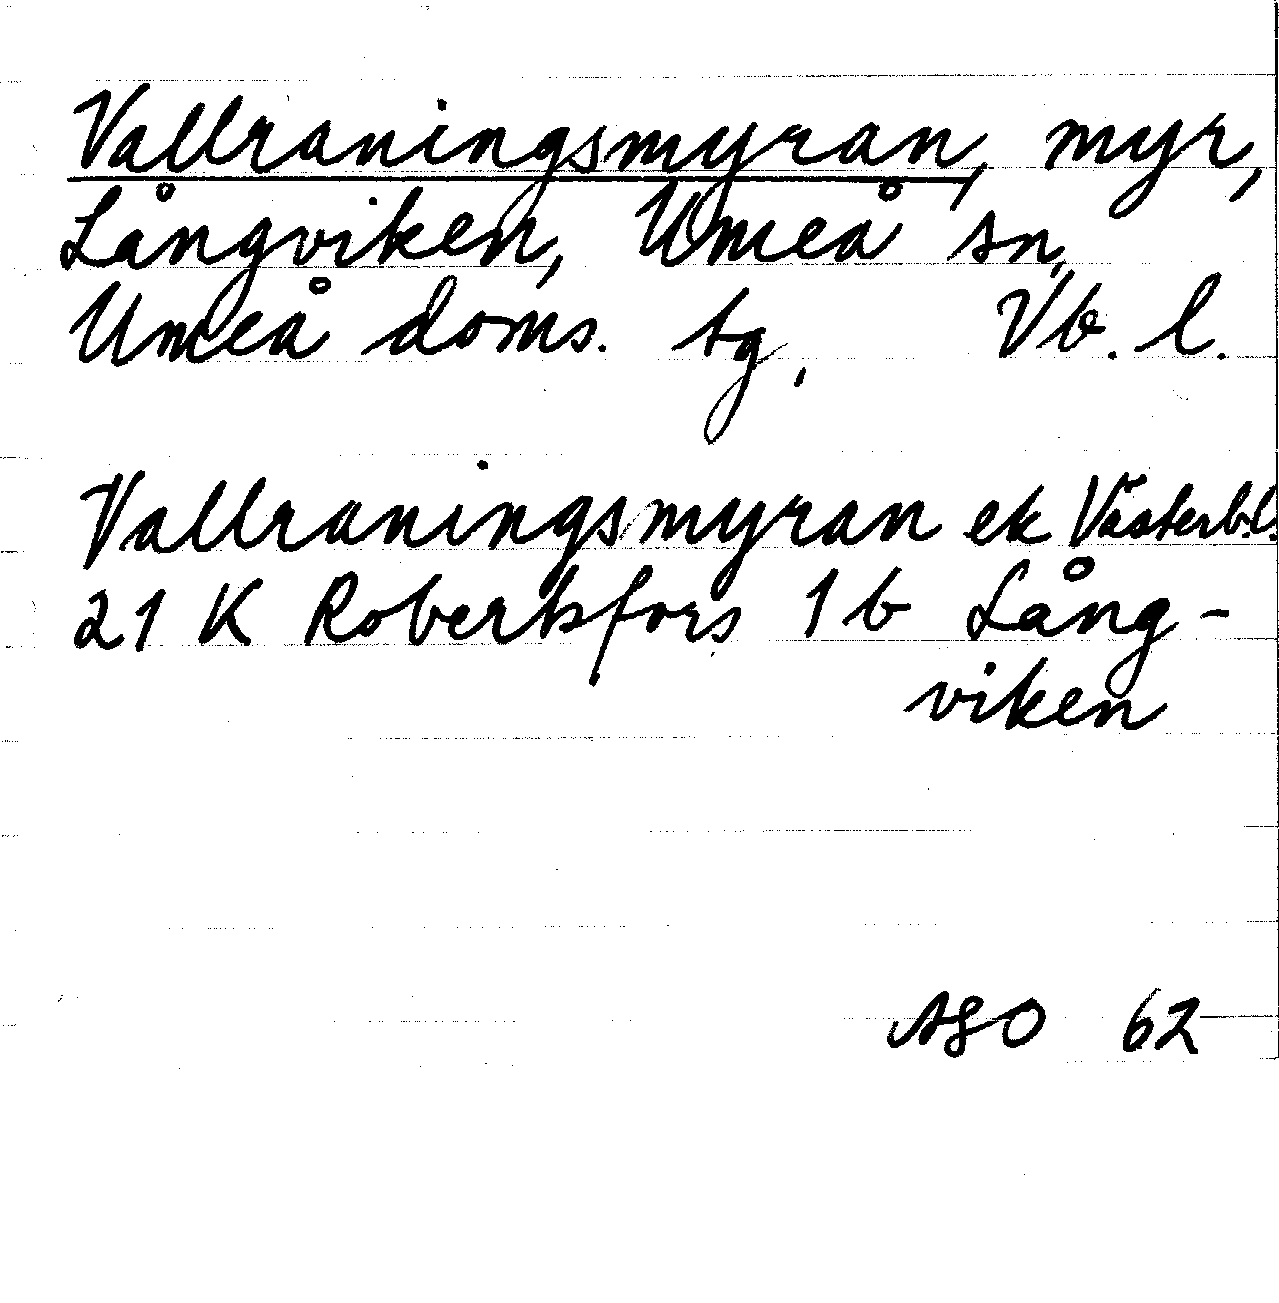 Vallraningsmyran, myr,
Långviken, Umeå sn,
Umeå doms. tg, Vb. l.
Vallraningsmyran ek Västerb.l.
21 K Robertsfors 1 b Lång-
viken
AGO 62